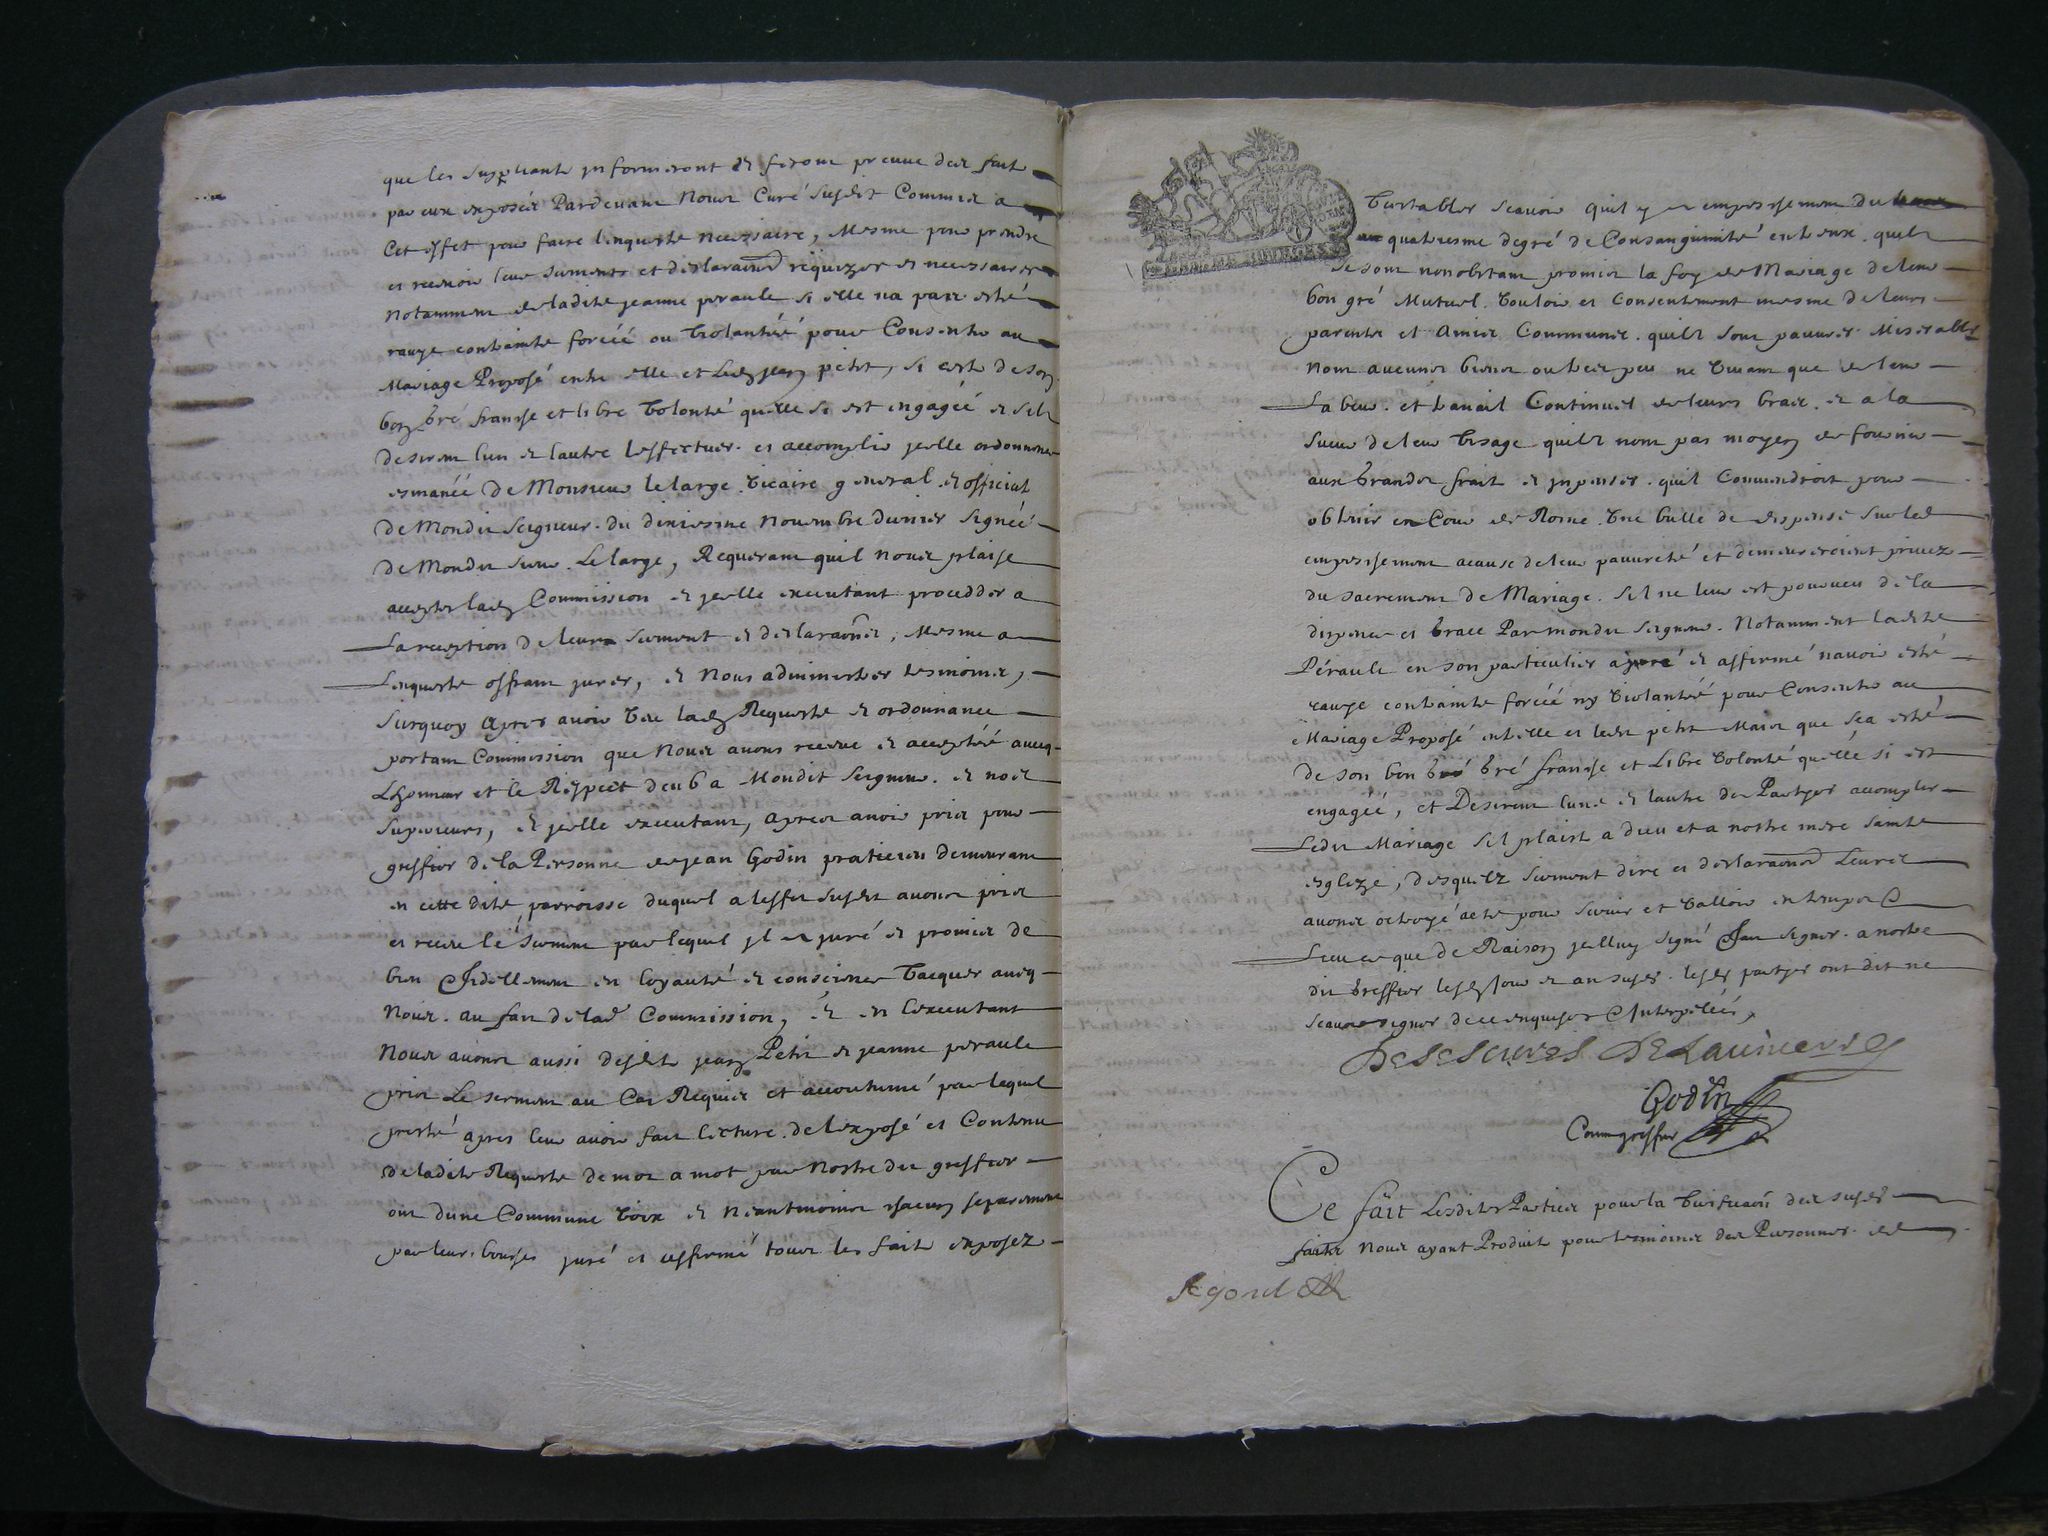 que les suppliants informeront et feront preuve des fait
par eux exposés Pardevant Nous Curé susdit Commis a
Cet effet pour faire lenqueste necessaire, Mesme pour prendre
et recevoir leur serments et declaraōns requizes et necessaires
notamment de ladite jeanne perault si elle na pas esté
ravye contrainte forcéé ou violantéé pour Consentir au
Mariage Proposé entre elle et led jean petit, si cest de son
bon gré franche et libre volonté quelle si est engagéé et sils
desirent lun et lautre leffectuer et accomplir jcelle ordonnance
emanéé De Monsieur lelarge vicaire general et official
De Mondit Seigneur du dixiesme Novembre dernier signéé
De Mondit sieur Lelarge, Requerant quil nous plaise
accepter lad Commission et jcelle executant procedder a
La reception de leurs serment et declaraōns, Mesme a
Lenqueste offrant jurer, et nous administrer tesmoins,
surquoy apres avoir veu lad Requeste et ordonnance
portant Commission que Nous avons receue et acceptéé avecq
Lhonneur et le Respect deub a Mondit Seigneur et nos
superieurs, et jcelle executant, apres avoir pris pour
greffier de la Personne de jean Godin praticien demeurant
en cette dite parroisse duquel a leffet susdit avons pris
et receu le serment par lequel jl a juré et promis de
bien fidellement en loyauté et conscience vacquer avecq
Nous au fait de lad Commission, et en lexecutant
Nous avons aussi desdit jean Petit et jeanne perault
pris Le serment au Cas Requis et accoutumé par lequel
presté apres leur avoir fait lecture de lexposé et Contenu
de ladite Requeste de mot a mot par nostre dit greffier
ont dune Commune voix et neantmoins chacun separement
par leur bouges juré et affirmé tous les fait exposez
BOURGES
veritables scavoir quil y a empeschement du
quatriesme degré de Consanguinité entreux quils
se sont nonobstant promis la foy de Mariage de leur
bon gré Mutuel vouloir et Consentement mesme de leurs
parents et Amis Communs quils sont pauvres Miserable
nont aucuns biens ou tres peu ne vivant que de leur
Labeur et travail Continuel de leurs bras et a la
sueur de leur visage quils nont pas moyen de fournir
aux grandes frait et jnpenses quil Conviendroit pour
obtenir en Cour de Rome vne bulle de dispense sur led
empeschement acause de leur pauvreté et demeureroient privez
du sacrement de Mariage sil ne leur est pourveu de la
dispence et grace Par mondit seigneur Notamment ladite
Pérault en son particulier a juré et affirmé navoir esté
ravye contrainte forcéé ny violantéé pour Consentir au
Mariage Proposé entrelle et ledit petit Mais que sca esté
de son bon gré franche et Libre volonté quellé si est
engagéé, et Desirent lune et lautre des Partyes accomplir
Ledit Mariage sil plaist a dieu et a nostre mere sainte
esglize, desquelz serment dire et declaraōns Leurs
avons octroyé acte pour servir et valloir en temps et
Lieu ce que de Raison jcelluy signé fait signer a nostre
dit greffier lesd jour et an susd. lesd partyes ont dit ne
scavoir signer de ce enquises et Interpéléés,
Godin
Comm greffier
Ce fait Lesdites Parties pour la veriffiaōn des susd
faits Nous ayant Produit pour tesmoins des Personnes de